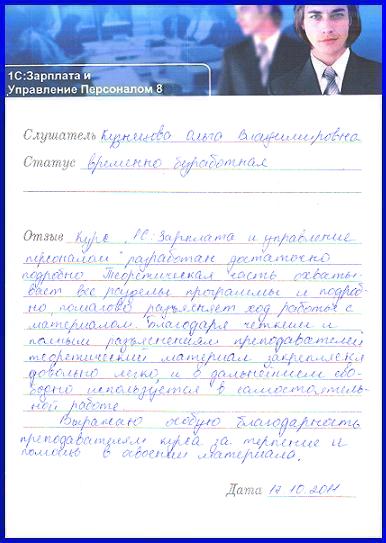 1С:Зарплата и
Управление Персоналом 8
Слушатель Кузнецова Ольга Владимировна
Статус временно безработная
Отзыв Курс "1С: Зарплата и управление
персоналом" разработан достаточно
подробно. Теоретическая часть охваты-
вает все разделы программы и подроб-
но, пошагово разъясняет ход работы с
материалом. Благодаря четким и
полным разъяснениям преподавателей
теоретический материал закрепляется
довольно легко и в дальнейшем сво-
бодно используется в самостоятель-
ной работе.
Выражаю особую благодарность
преподавателям курса за терпение и
помощь в освоении материала.
Дата 17.10.2011